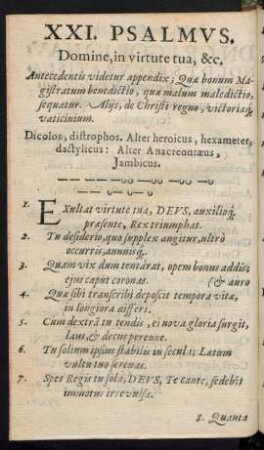 XXI. PSALMVS.
Domine, in virtute tua, &c.
Antecedentis videtur appendix; Quæ bonum Ma-
gistratum benedictio, quæ malum maledictio,
sequatur. Alijs, de Christi regno, victoriaq́,
vaticinium.
Dicolos, distrophos. Alter heroicus, hexameter,
dactylicus: Alter Anacreontæus,
Jambicus.
1. EXultat virtute tua, DEVS, auxilioq́,
præsente, Rex triumphat.
2. Tu desiderio, quo supplex angitur, ultrò
occurris, annuisq́.
3. Quam vix dum tentârat, opem bonus addis;
ejus caput coronas. (& auro
4. Quæ sibi transcribi deposcit tempora vitæ,
in longiora differs.
5. Cum dextrâ tu tendis, ei nova gloria surgit,
laus, & decus perenne.
6. Tu solium ipsius stabilis in secula; Lætum
vultu tuo serenas.
7. Spes Regis tu sola, DEVS, Te cante, sedebit
immotus irrevulsq́.
8. Quanta